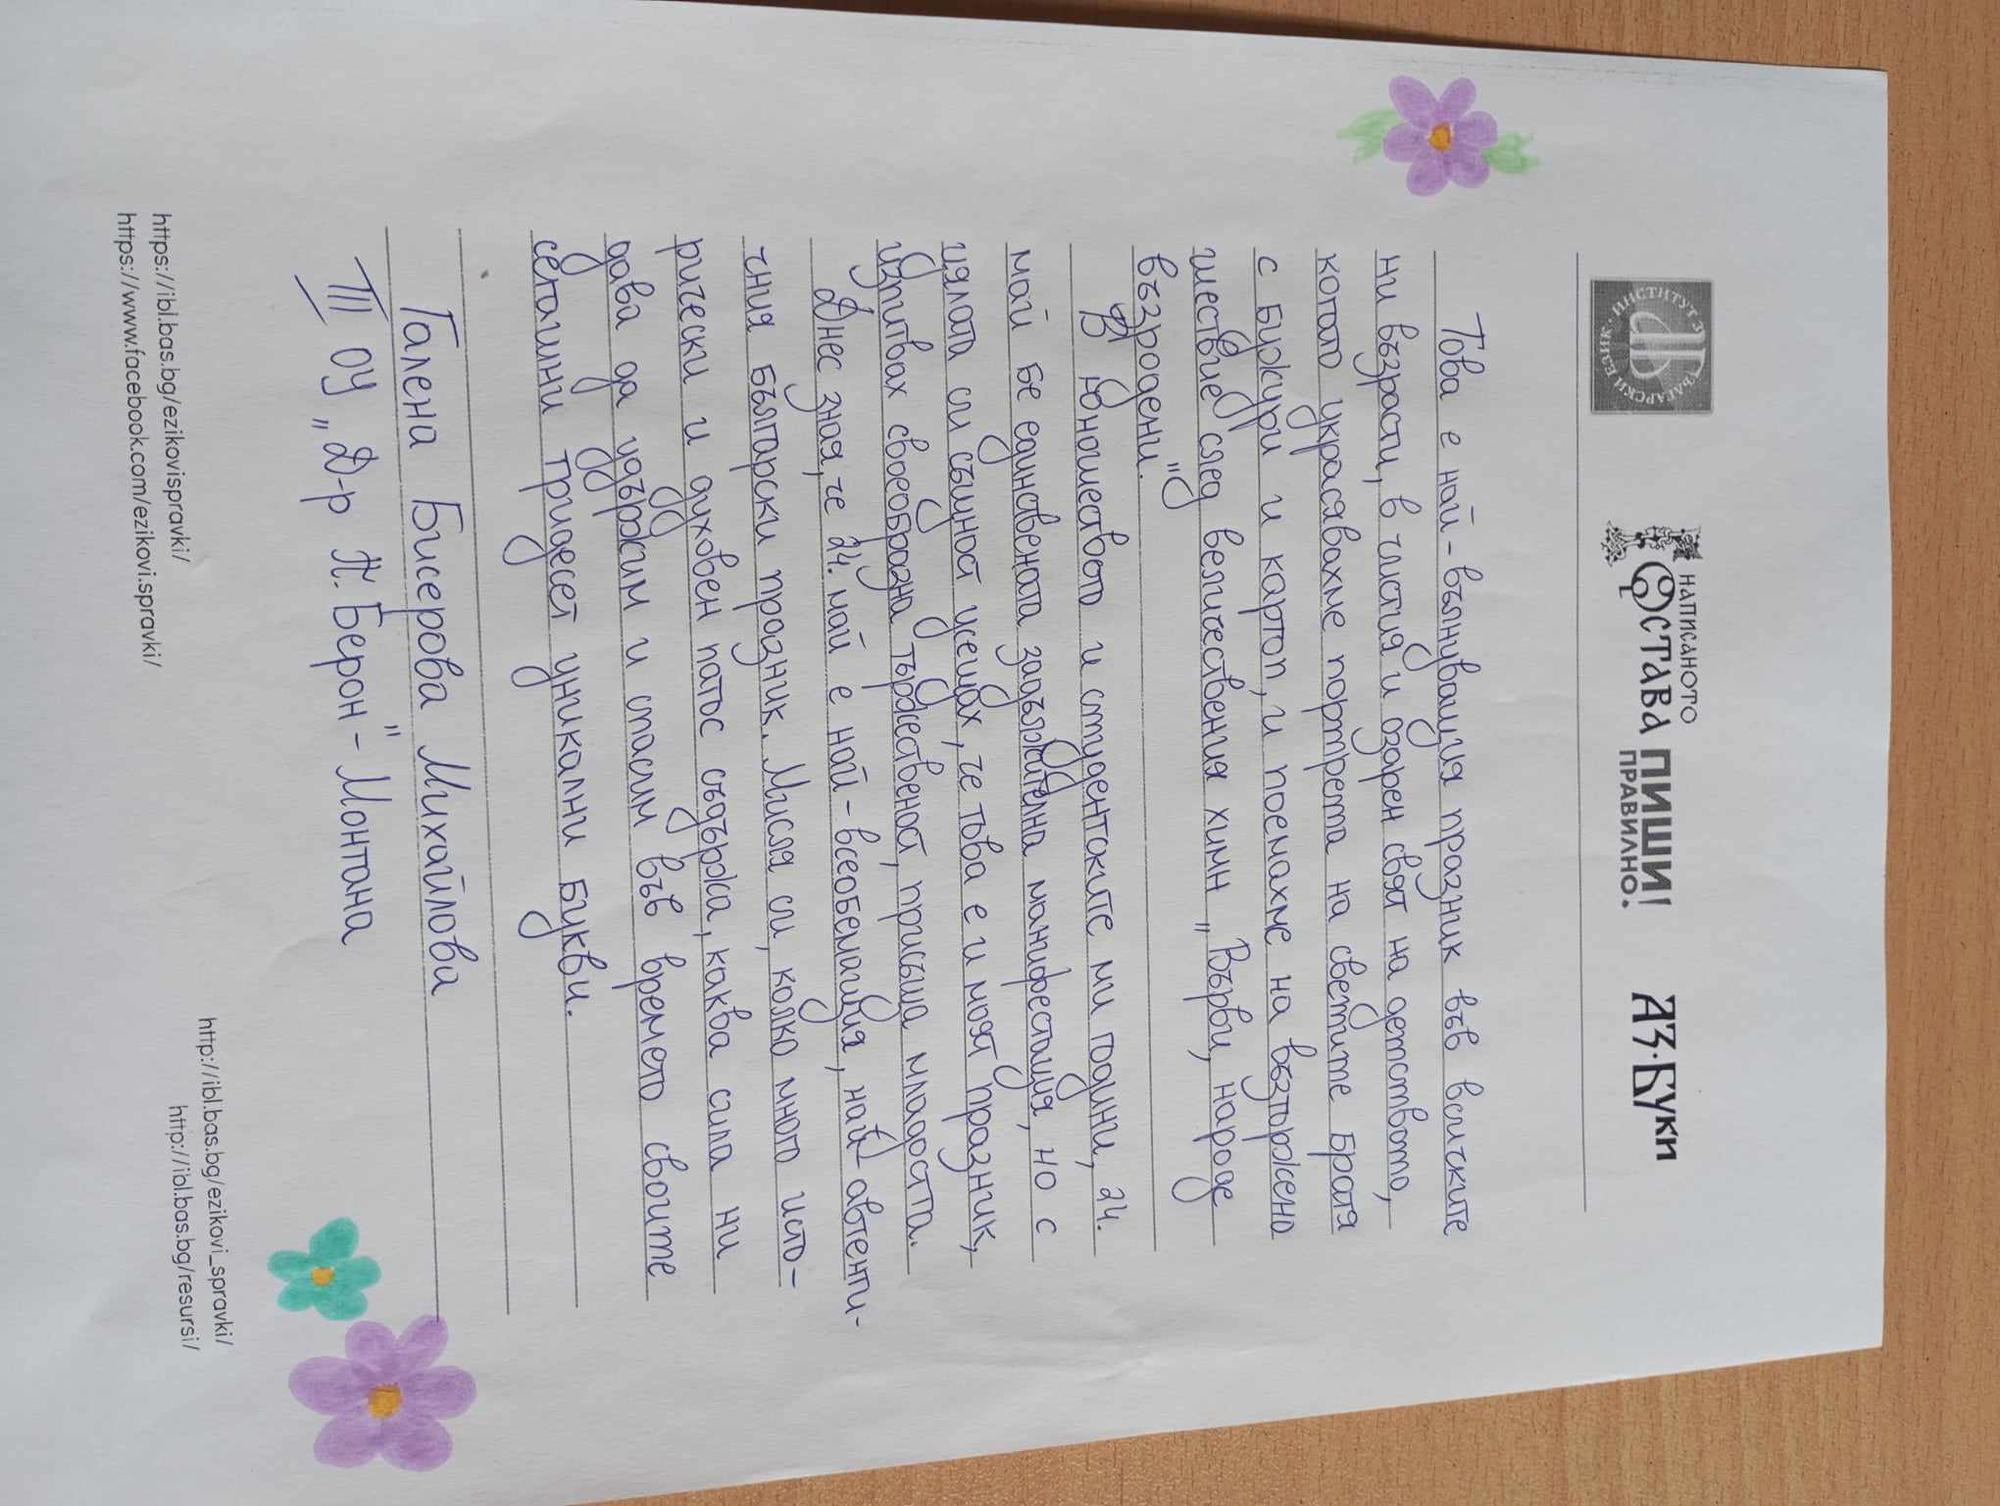 ИНСТИТУТ ЗА БЪЛГАРСКИ ЕЗИК
НАПИСАНОТО
ОСТАВА ПИШИ!
ПРАВИЛНО.
АЗ·БУКИ
Това е най-вълнуващия празник във всичките
ни възрасти, в чистия и озарен свят на детството,
когато украсявахме портрета на светите братя
с бужури и картоп, и поемахме на възторжено
шествие след величествения химн „Върви, народе
възродени."
В юношеството и студентските ми години, 24.
май бе единствената задължителна манифестация, но с
цялата си същност усещах, че това е и моят празник,
изпитвах своеобразна тържественост, присъща младостта.
Днес зная, че 24. май е най-всеобемащия, най-автенти-
чния български празник. Мисля си, колко много исто-
рически и духовен патос съдържа, каква сила ни
дава да удържим и спасим във времето своите
сегашни тридесет уникални букви.
Галена Бисерова Михайлова
III ОУ „Д-р П. Берон" - Монтана
https://ibl.bas.bg/ezikovispravki/
https://www.facebook.com/ezikovi.spravki/
http://ibl.bas.bg/ezikovi_spravki/
http://ibl.bas.bg/resursi/